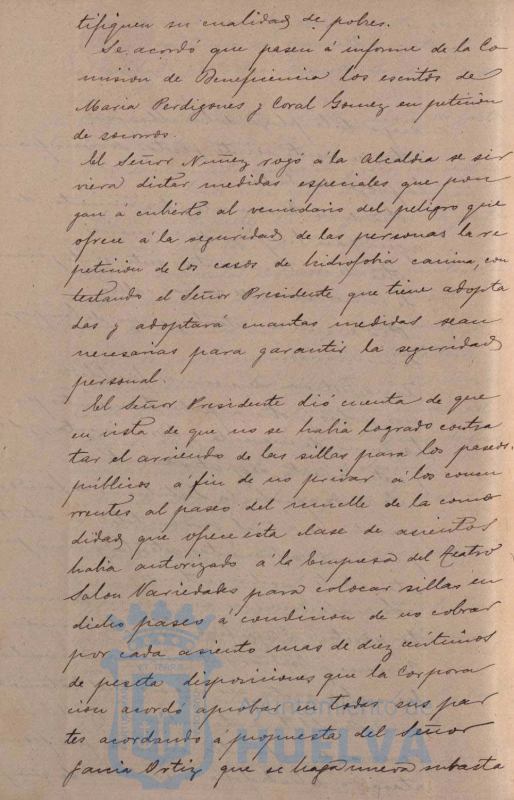 tifiquen su cualidad de pobres.
Se acordó que pasen á informe de la Co
mision de Beneficencia los escritos de
Maria Perdigones y Coral Gomez en peticion
de socorros.
El Señor Nuñez rogó á la Alcaldia se sir
viera dictar medidas especiales que pon
gan á cubierto al vecindario del peligro que
ofrece á la seguridad de las personas la re
peticion de los casos de hidrofobia canina, con
testando el Señor Presidente que tiene adopta
das y adoptará cuantas medidas sean
necesarias para garantir la seguridad
personal.
El Señor Presidente dió cuenta de que
en vista de que no se habia logrado contra
tar el arriendo de las sillas para los paseos
públicos á fin de no privar á los concu
rrentes al paseo del muelle de la como
didad que ofrece ésta clase de asientos
habia autorizado á la Empresa del Teatro
Salon Variedades para colocar sillas en
dicho paseo á condicion de no cobrar
por cada asiento mas de diez céntimos
de peseta disposiciones que la Corpora
cion acordó aprobar en todas sus par
tes acordando á propuesta del Señor
Garcia Ortiz que se haga nueva subasta
Ayuntamiento de
HUELVA